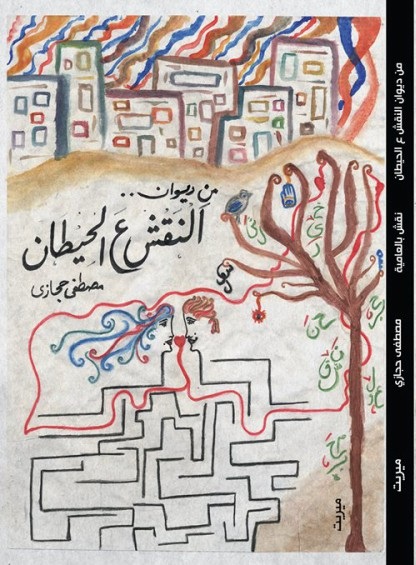 من ديوان..
النقش ع الحيطان
مصطفى حجازي
ميريت
من ديوان النقش ع الحيطان
نقش بالعامية
مصطفى حجازي
ميريت